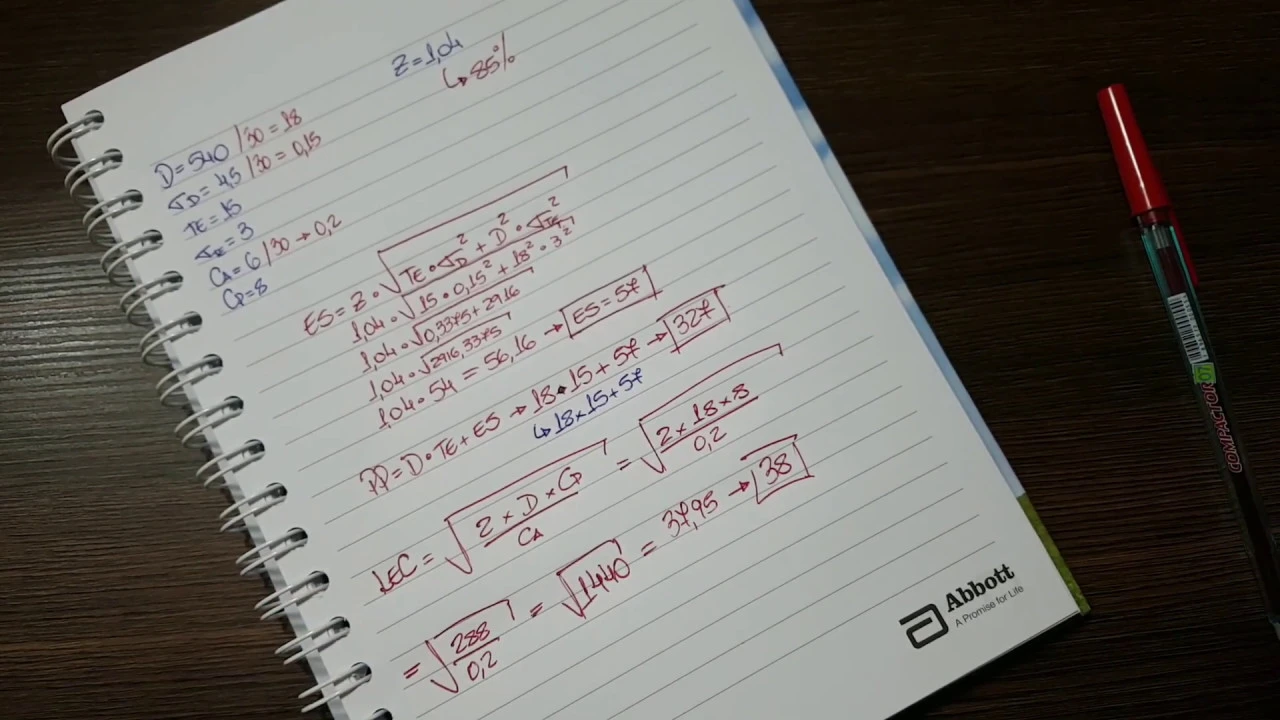 Z = 1,04
↳ 85%
D = 540 / 30 = 18
σD = 45 / 30 = 0,15
TE = 15
σTE = 3
CA = 6 / 30 → 0,2
CP = 8
ES = Z • √TE • σD² + D² • σTE²
1,04 • √15 • 0,15² + 18² • 3²
1,04 • √0,3375 + 2916
1,04 • √2916,3375
1,04 • 54 = 56,16 → ES = 57
PP = D • TE + ES → 18 • 15 + 57 → 327
↳ 18 x 15 + 57
LEC = √2 x D x CP / CA = √2 x 18 x 8 / 0,2
= √288 / 0,2 = √1440 = 37,95 → 38
Abbott
A Promise for Life
COMPACTOR 07